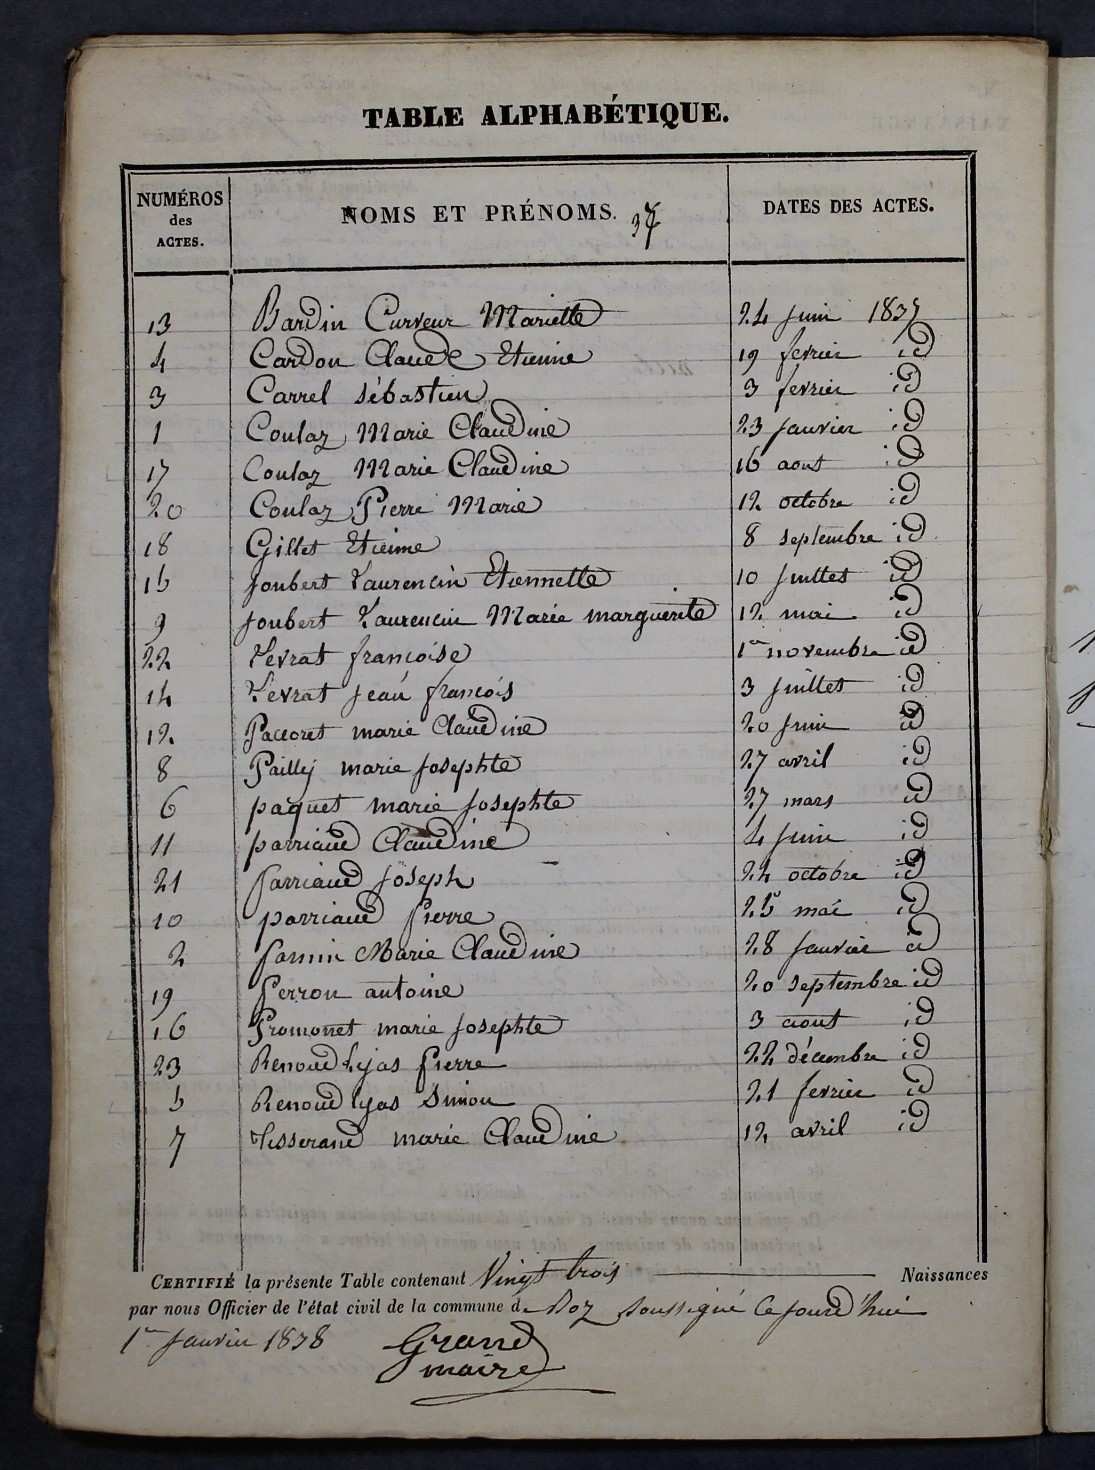 TABLE ALPHABÉTIQUE.
NUMÉROS des ACTES. NOMS ET PRÉNOMS. 37 DATES DES ACTES.
13 Bardin Curveur Mariette 24 juin 1837
4 Cardon Claude Etienne 19 fevrier id
3 Carrel Sébastien 3 fevrier id
1 Coulaz Marie Claudine 23 janvier id
17 Coulaz Marie Claudine 16 aout id
20 Coulaz Pierre Marie 12 octobre id
18 Gillet Etienne 8 septembre id
15 Joubert Laurencin Etiennette 10 juillet id
9 Joubert Laurencin Marie marguerite 12 mai id
22 Levrat francoise 1er novembre id
14 Levrat jean francois 3 juillet id
12 Paccoret marie Claudine 20 juin id
8 Pailly marie josephte 27 avril id
6 paquet marie josephte 27 mars id
11 parriaud Claudine 4 juin id
21 parriaud joseph 22 octobre id
10 parriaud pierre 25 mai id
2 Marie Claudine 28 janvier id
19 perron antoine 20 septembre id
16 Promonet marie josephte 3 aout id
23 Renoud Lyas pierre 22 décembre id
5 Renoud lyas Simon 21 fevrier id
7 Tisserand marie Claudine 12 avril id
CERTIFIÉ la présente Table contenant Vingt trois Naissances
par nous Officier de l'état civil de la commune de Boz soussigné Ce jourd'hui
1er janvier 1838 Grand
maire